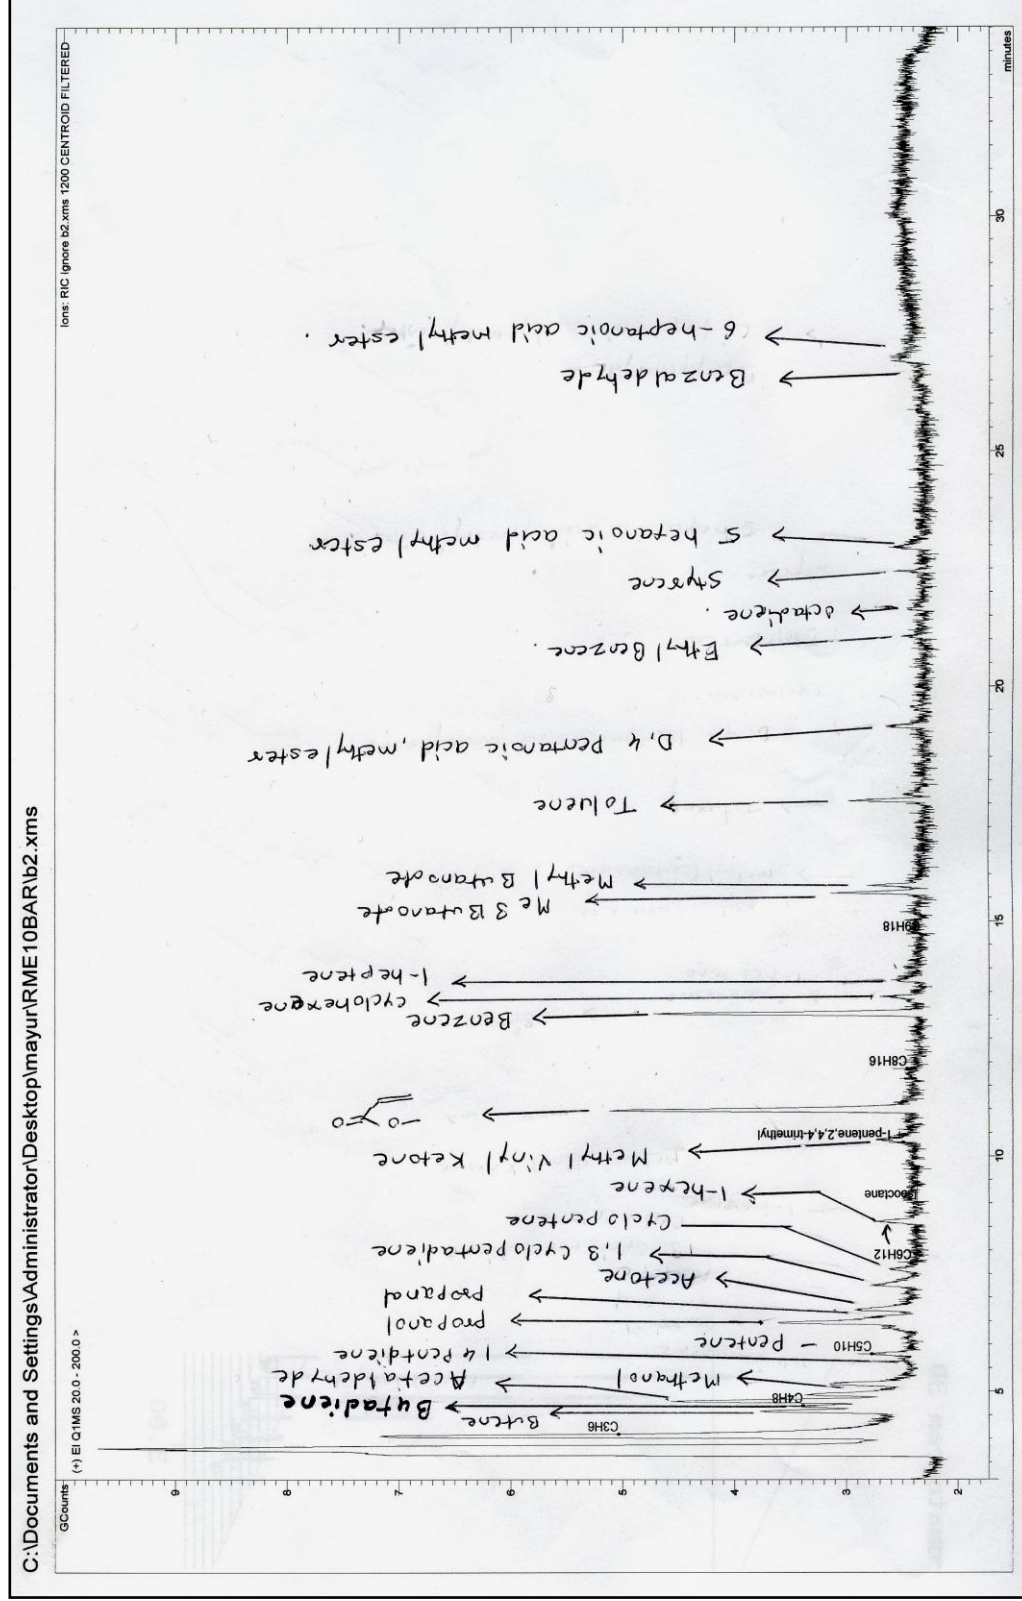 C:\Documents and Settings\Administrator\Desktop\mayur\RME10BAR\b2.xms
GCounts
(+) EI Q1MS 20.0 - 200.0 >
Ions: RIC Ignore b2.xms 1200 CENTROID FILTERED
9
8
7
6
5
4
3
2
C3H6
Butene
Butadiene
C4H8
Acetaldehyde
Methanol
1 4 Pentdiene
C5H10
- Pentene
propanol
propanal
Acetone
1,3 Cyclopentadiene
Cyclo pentene
C6H12
1-hexene
isooctane
Methyl Vinyl Ketone
1-pentene,2,4,4-trimethyl
O
O
C8H16
Benzene
cyclohexane
1-heptene
C9H18
Me 3 Butanoate
Methyl Butanoate
Toluene
D,4 Pentanoic acid, methyl ester
Ethyl Benzene.
octadiene.
Styrene
5 hexanoic acid methyl ester
Benzaldehyde
6-heptanoic acid methyl ester.
5
10
15
20
25
30
minutes